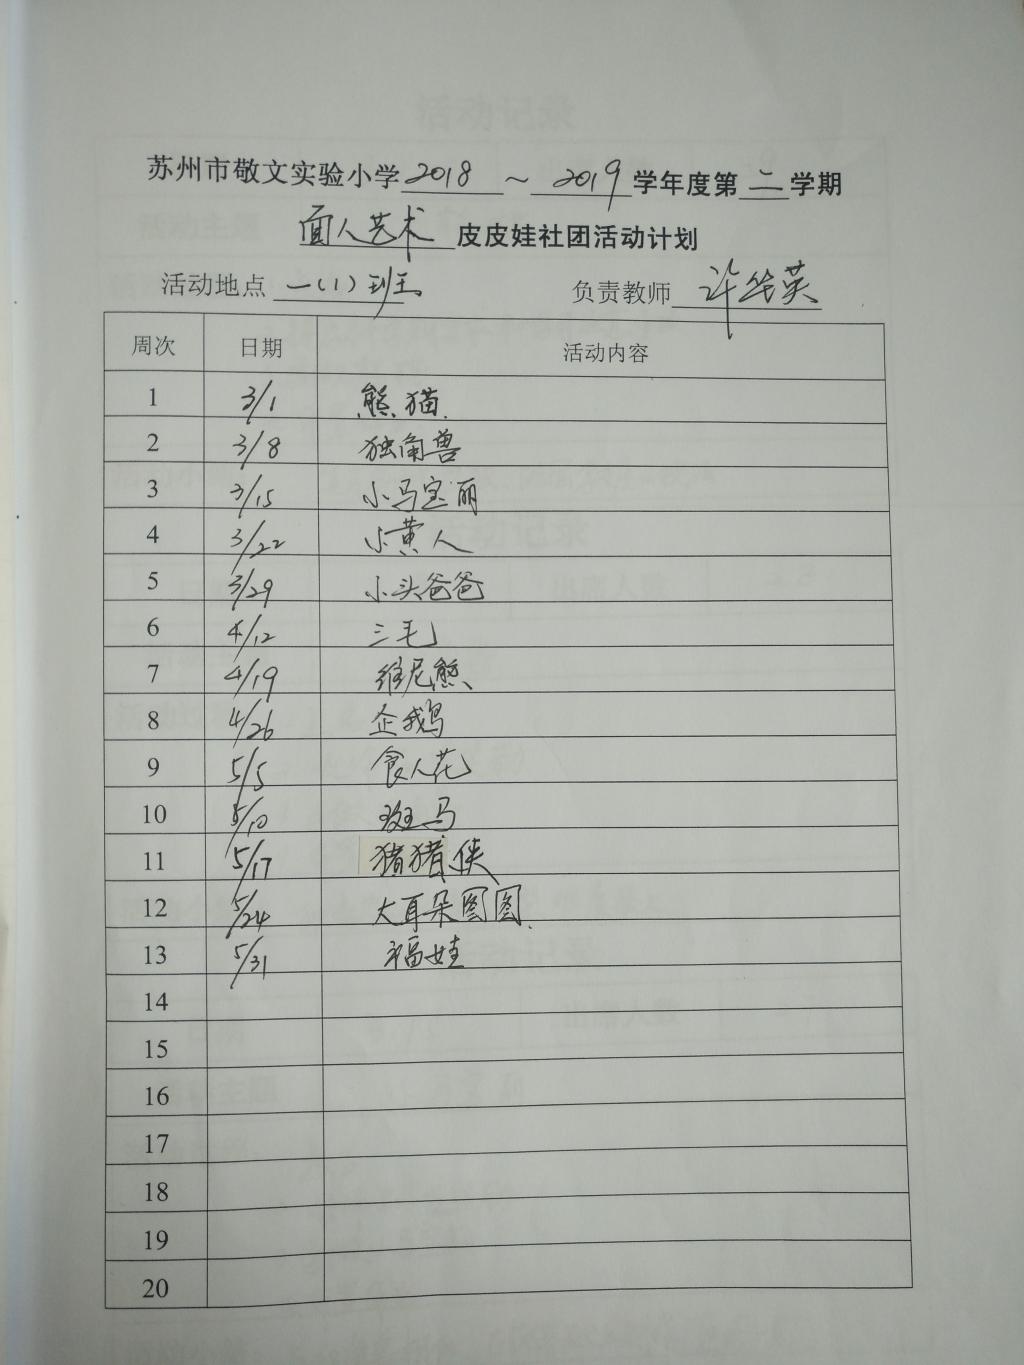 苏州市敬文实验小学2018~2019学年度第二学期
面人艺术皮皮娃社团活动计划
活动地点 一(1)班 负责教师 许华英
周次 日期 活动内容
1 3/1 熊猫
2 3/8 独角兽
3 3/15 小马宝丽
4 3/22 小黄人
5 3/29 小头爸爸
6 4/12 三毛
7 4/19 维尼熊
8 4/26 企鹅
9 5/5 食人花
10 5/10 斑马
11 5/17 猪猪侠
12 5/24 大耳朵图图
13 5/31 福娃
14
15
16
17
18
19
20